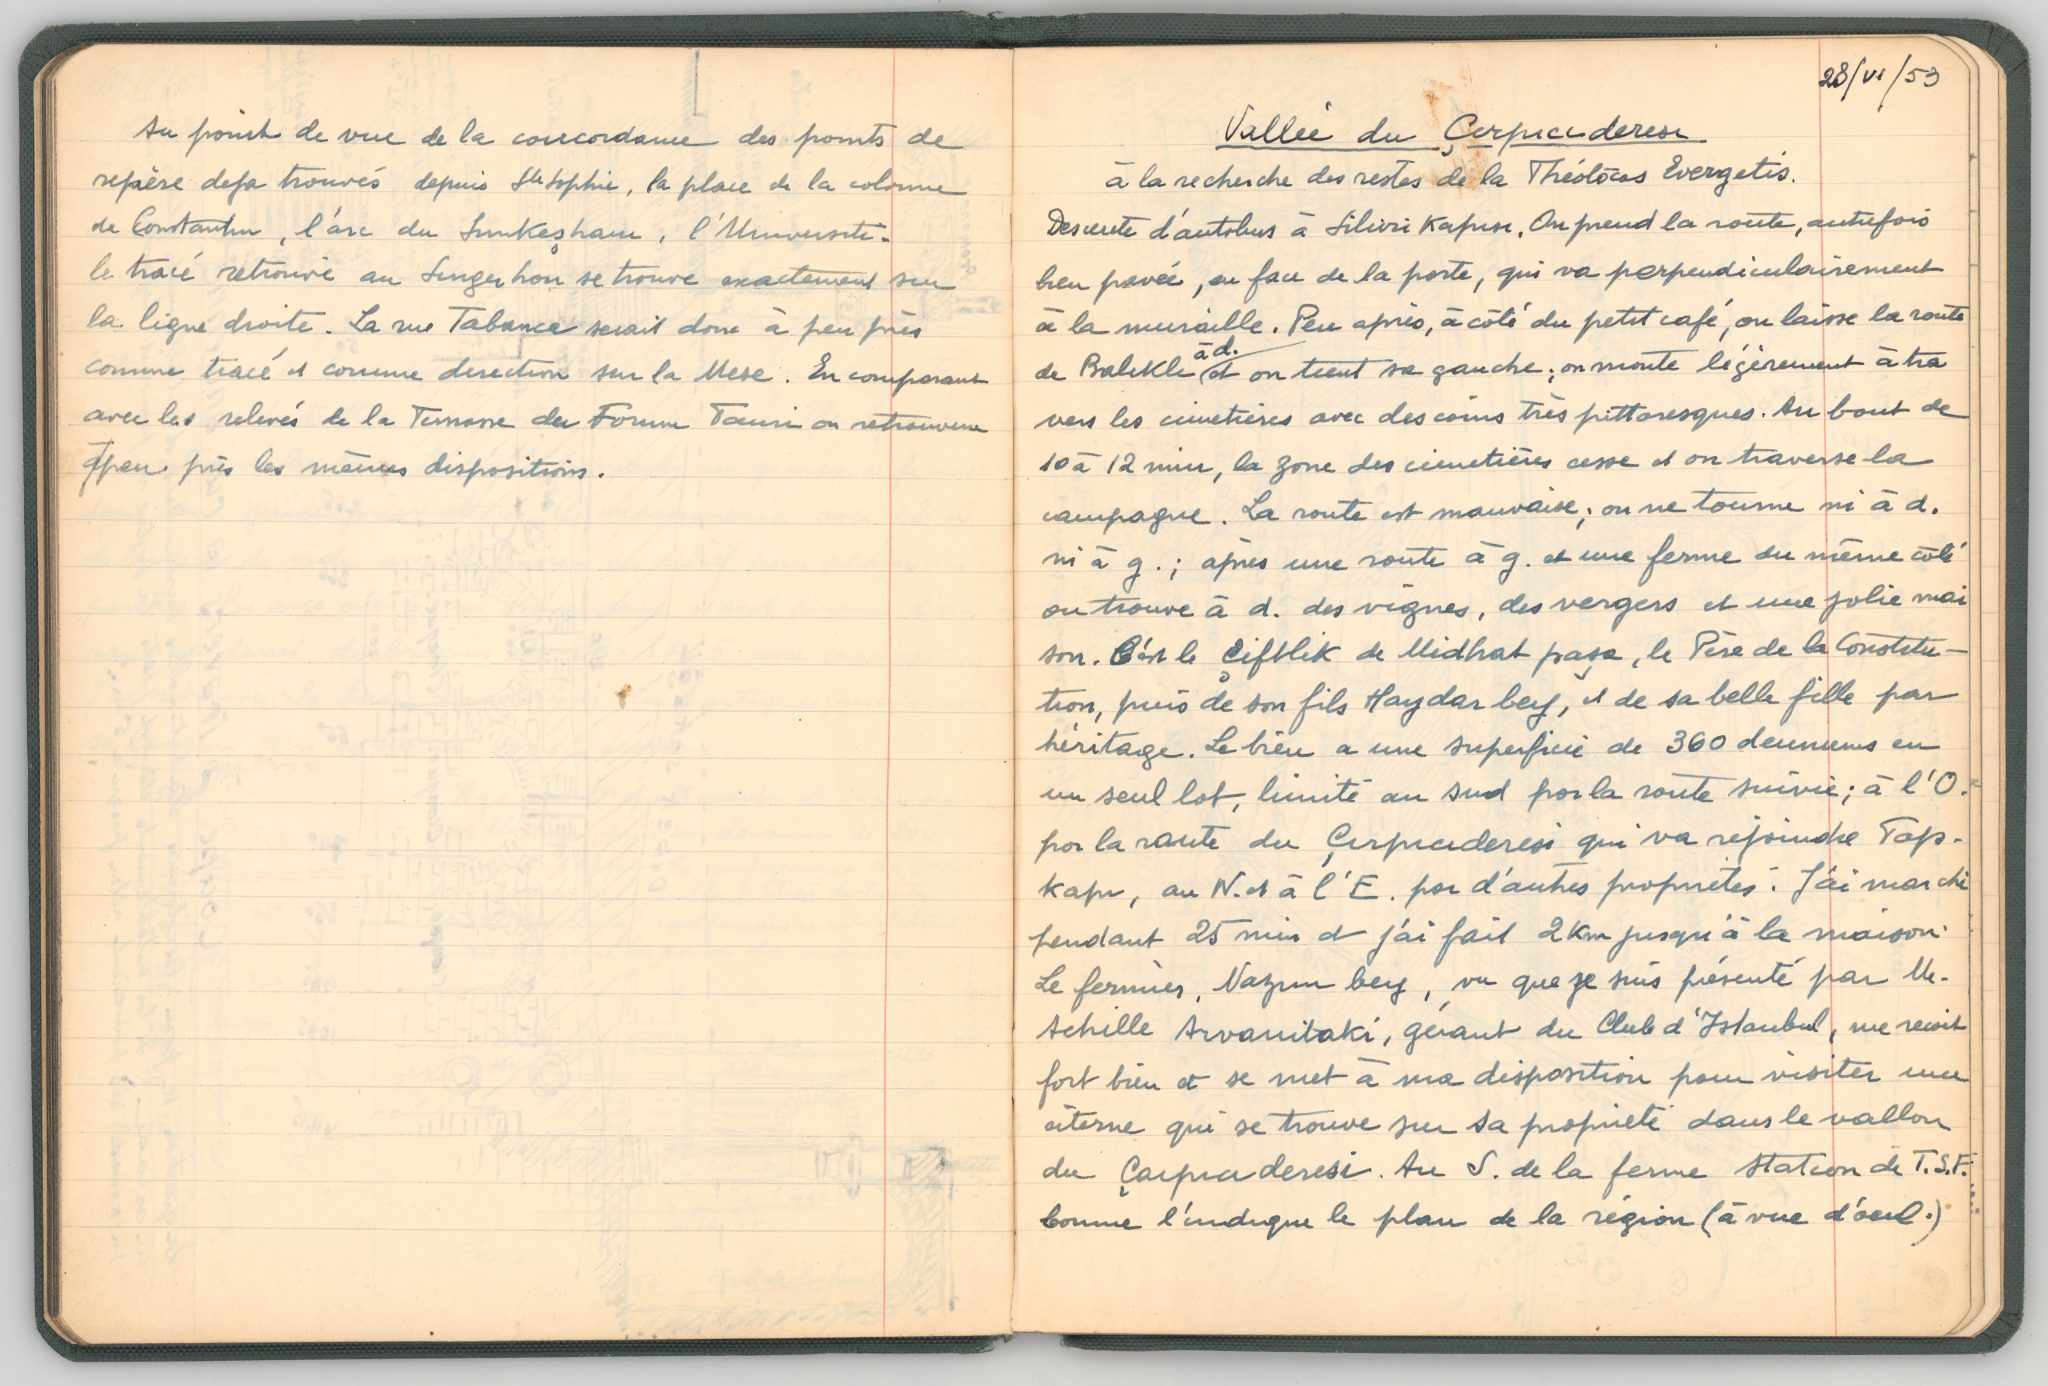 Au point de vue de la concordance des points de
repère deja trouvés depuis Ste Sophie, la place de la colonne
de Constantin, l'arc du Simkeşhane, l'Université.
le tracé retrouvé au Singerhon se trouve exactement sur
la ligne droite. La rue Tabanca serait donc à peu près
comme tracé et comme direction sur la Mese. En comparant
avec les relevés de la Terrasse du Forum Tauri on retrouve
à peu près les mêmes dispositions.
28/VI/53
Vallée du Çırpıcıderesi
à la recherche des restes de la Théotocos Evergetis.
Descente d'autobus à Silivri Kapısı. On prend la route, autrefois
bien pavée, en face de la porte, qui va perpendiculairement
à la muraille. Peu après, à côté du petit café, on laisse la route
de Balıklı à d. et on tient sa gauche; on monte légèrement à tra
vers les cimetières avec des coins très pittoresques. Au bout de
10 à 12 min, la zone des cimetières cesse et on traverse la
campagne. La route est mauvaise; on ne tourne ni à d.
ni à g.; après une route à g. et une ferme du même côté
on trouve à d. des vignes, des vergers et une jolie mai
son. C'est le Çiftlik de Midhat paşa, le Père de la Constitu-
tion, puis de son fils Haydar bey, et de sa belle fille par
héritage. Le bien a une superficie de 360 deunums en
un seul lot, limité au sud par la route suivie; à l'O.
par la route du Çırpıcıderesi qui va rejoindre Top-
kapı, au N. et à l'E. par d'autres propriétés. J'ai marché
pendant 25 min et j'ai fait 2 Km jusqu'à la maison.
Le fermier, Nazım bey, vu que je suis présenté par M.
Achille Arvanitaki, gérant du Club d'Istanbul, me reçoit
fort bien et se met à ma disposition pour visiter une
citerne qui se trouve sur sa propriété dans le vallon
du Çarpıcıderesi. Au S. de la ferme Station de T.S.F.
Comme l'indique le plan de la région (à vue d'oeil.)